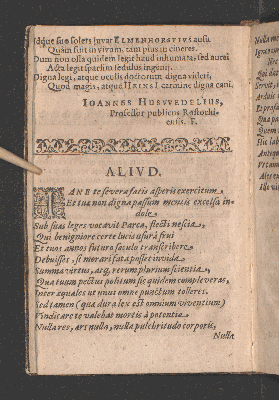 Idque suo solers juvat ELMENHORSTIVS ausu
Quàm sint in vivum, tam pius in cineres.
Dum non olla quidem legit haud inhumata, sed aurei
Acta legit sparsim sedulus ingenii.
Digna legi, atque oculis doctorum digna videri,
Quod magis, atque carmine digna cani.
IOANNES HUSWEDELIUS,
Professor publicus Rostochi-
ensis. F.
ALIVD.
TANE te severa fatis asperis exercitum
Et tua non digna passum mentis excelsa in-
dole
Sub suas leges vocavit Parca, flecti nescia,
Qui benigniore certe lucis usurâ frui
Et tuos annos futuro saeculo transcribere
Debuisses, si merari fata posset invida
Summa virtus, atq, rerum plurium scientia,
Qua tuum pectus politum sic quidem compleveras,
Inter aequales ut unus omne punctum tolleres.
Sed tamen (qua dura lex est omnium viventium)
Vindicare te valebat mortis à potentia
Nulla res, ars nulla, nulla pulchritudo corporis,
Nulla